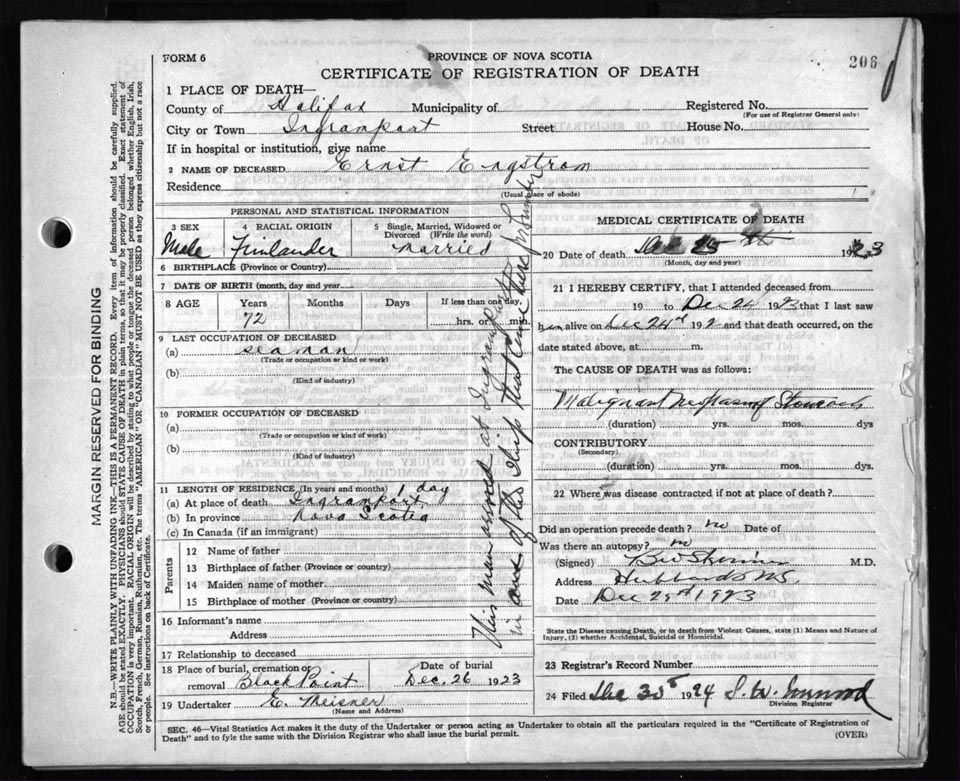 PROVINCE OF NOVA SCOTIA
FORM 6
206
CERTIFICATE OF REGISTRATION OF DEATH
1 PLACE OF DEATH—
County of Halifax Municipality of Registered No.
(For use of Registrar General only)
City or Town Ingramport Street House No.
If in hospital or institution, give name
2 NAME OF DECEASED Ernst Engstrom
Residence
(Usual place of abode)
PERSONAL AND STATISTICAL INFORMATION
3 SEX 4 RACIAL ORIGIN 5 Single, Married, Widowed or
Divorced (Write the word)
Male Finlander Married
6 BIRTHPLACE (Province or Country)
7 DATE OF BIRTH (month, day and year)
8 AGE Years Months Days If less than one day
72 hrs. or min.
9 LAST OCCUPATION OF DECEASED
(a) seaman
(Trade or occupation or kind or work)
(b)
(Kind of industry)
10 FORMER OCCUPATION OF DECEASED
(a)
(Trade or occupation or kind or work)
(b)
(Kind of industry)
11 LENGTH OF RESIDENCE (In years and months) 1 day
(a) At place of death Ingramport
(b) In province Nova Scotia
(c) In Canada (if an immigrant)
Parents
12 Name of father
13 Birthplace of father (Province or country)
14 Maiden name of mother
15 Birthplace of mother (Province or country)
16 Informant's name
Address
17 Relationship to deceased
18 Place of burial, cremation or Date of burial
removal Black Point Dec. 26 1923
19 Undertaker E. Meisner
(Name and Address)
This man arrived at Ingramport
in one of the ships that came here for lumber
MEDICAL CERTIFICATE OF DEATH
20 Date of death Dec 25 th 1923
(Month, day and year)
21 I HEREBY CERTIFY, that I attended deceased from
19 to Dec 24 1923 that I last saw
him alive on Dec 24th 192 and that death occurred, on the
date stated above, at m.
The CAUSE OF DEATH was as follows:
Malignant Neoplasm of Stomach
(duration) yrs. mos. dys
CONTRIBUTORY
(Secondary)
(duration) yrs. mos. dys.
22 Where was disease contracted if not at place of death?
Did an operation precede death? no Date of
Was there an autopsy? no
(Signed) M.D.
Address Hubbards NS
Date Dec 29th 1923
State the Disease causing Death, or in death from Violent Causes, state (1) Means and Nature of
Injury, (2) whether Accidental, Suicidal or Homicidal.
23 Registrar's Record Number
24 Filed 1924
Division Registrar
SEC. 46—Vital Statistics Act makes it the duty of the Undertaker or person acting as Undertaker to obtain all the particulars required in the "Certificate of Registration of
Death" and to fyle the same with the Division Registrar who shall issue the burial permit.
(OVER)
MARGIN RESERVED FOR BINDING
N.B.—WRITE PLAINLY WITH UNFADING INK—THIS IS A PERMANENT RECORD. Every item of information should be carefully supplied.
AGE should be stated EXACTLY. PHYSICIANS should STATE CAUSE OF DEATH in plain terms, so that it may be properly classified. Exact statement of
OCCUPATION is very important. RACIAL ORIGIN will be described by stating to what people or tongue the deceased person belonged whether English, Irish,
Scotch, French, German, Russian, Ruthenian, etc. The terms "AMERICAN" OR "CANADIAN" MUST NOT BE USED as they express citizenship but not a race
or people. See instructions on back of Certificate.